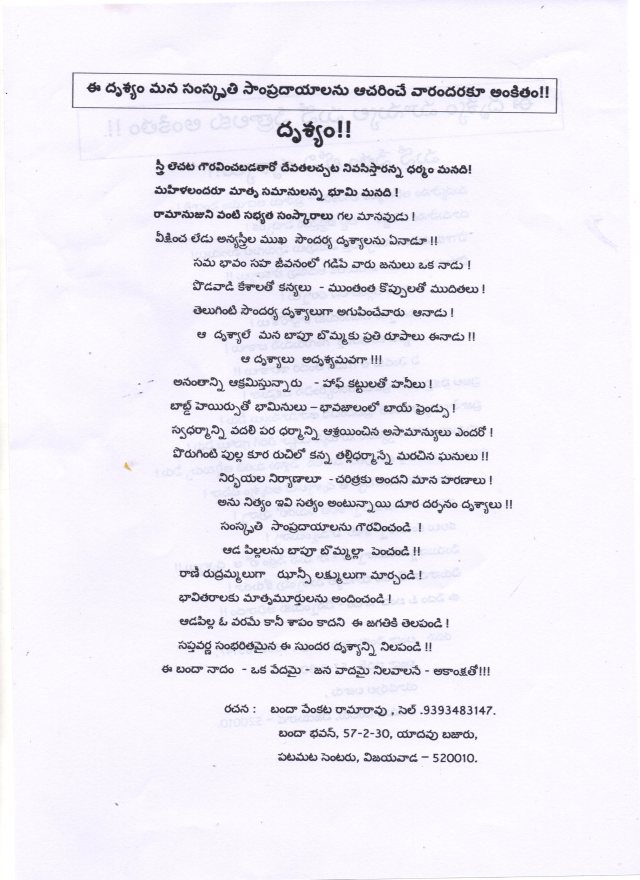 ఈ దృశ్యం మన సంస్కృతి సాంప్రదాయాలను ఆచరించే వారందరకూ అంకితం!!
దృశ్యం!!
స్త్రీ లెచట గౌరవించబడతారో దేవతలచ్చట నివసిస్తారన్న ధర్మం మనది!
మహిళలందరూ మాతృ సమానులన్న భూమి మనది !
రామానుజుని వంటి సభ్యత సంస్కారాలు గల మానవుడు !
వీక్షించ లేడు అన్యస్త్రీల ముఖ సౌందర్య దృశ్యాలను ఏనాడూ !!
సమ భావం సహ జీవనంలో గడిపే వారు జనులు ఒక నాడు !
పొడవాటి కేశాలతో కన్యలు - ముంతంత కొప్పులతో ముదితలు !
తెలుగింటి సౌందర్య దృశ్యాలుగా అగుపించేవారు ఆనాడు !
ఆ దృశ్యాలే మన బాపూ బొమ్మకు ప్రతి రూపాలు ఈనాడు !!
ఆ దృశ్యాలు అదృశ్యమవగా !!!
అనంతాన్ని ఆక్రమిస్తున్నారు - హాఫ్ కట్టులతో హనీలు !
బాబ్డ్ హెయిర్సుతో భామినులు – భావజాలంలో బాయ్ ఫ్రెండ్సు !
స్వధర్మాన్ని వదలి పర ధర్మాన్ని ఆశ్రయించిన అసామాన్యులు ఎందరో !
పొరుగింటి పుల్ల కూర రుచిలో కన్న తల్లిధర్మాన్నే మరచిన ఘనులు !!
నిర్భయల నిర్యాణాలూ - చరిత్రకు అందని మాన హరణాలు !
అను నిత్యం ఇవి సత్యం అంటున్నాయి దూర దర్శనం దృశ్యాలు !!
సంస్కృతి సాంప్రదాయాలను గౌరవించండి !
ఆడ పిల్లలను బాపూ బొమ్మల్లా పెంచండి !!
రాణీ రుద్రమ్మలుగా ఝాన్సీ లక్ష్ములుగా మార్చండి !
భావితరాలకు మాతృమూర్తులను అందించండి !
ఆడపిల్ల ఓ వరమే కానీ శాపం కాదని ఈ జగతికి తెలపండి !
సప్తవర్ణ సంభరితమైన ఈ సుందర దృశ్యాన్ని నిలపండి !!
ఈ బండా నాదం - ఒక వేదమై - జన వాదమై నిలవాలనే - అకాంక్షతో!!!
రచన : బండా వేంకట రామారావు , సెల్ .9393483147.
బండా భవన్, 57-2-30, యాదవు బజారు,
పటమట సెంటరు, విజయవాడ – 520010.